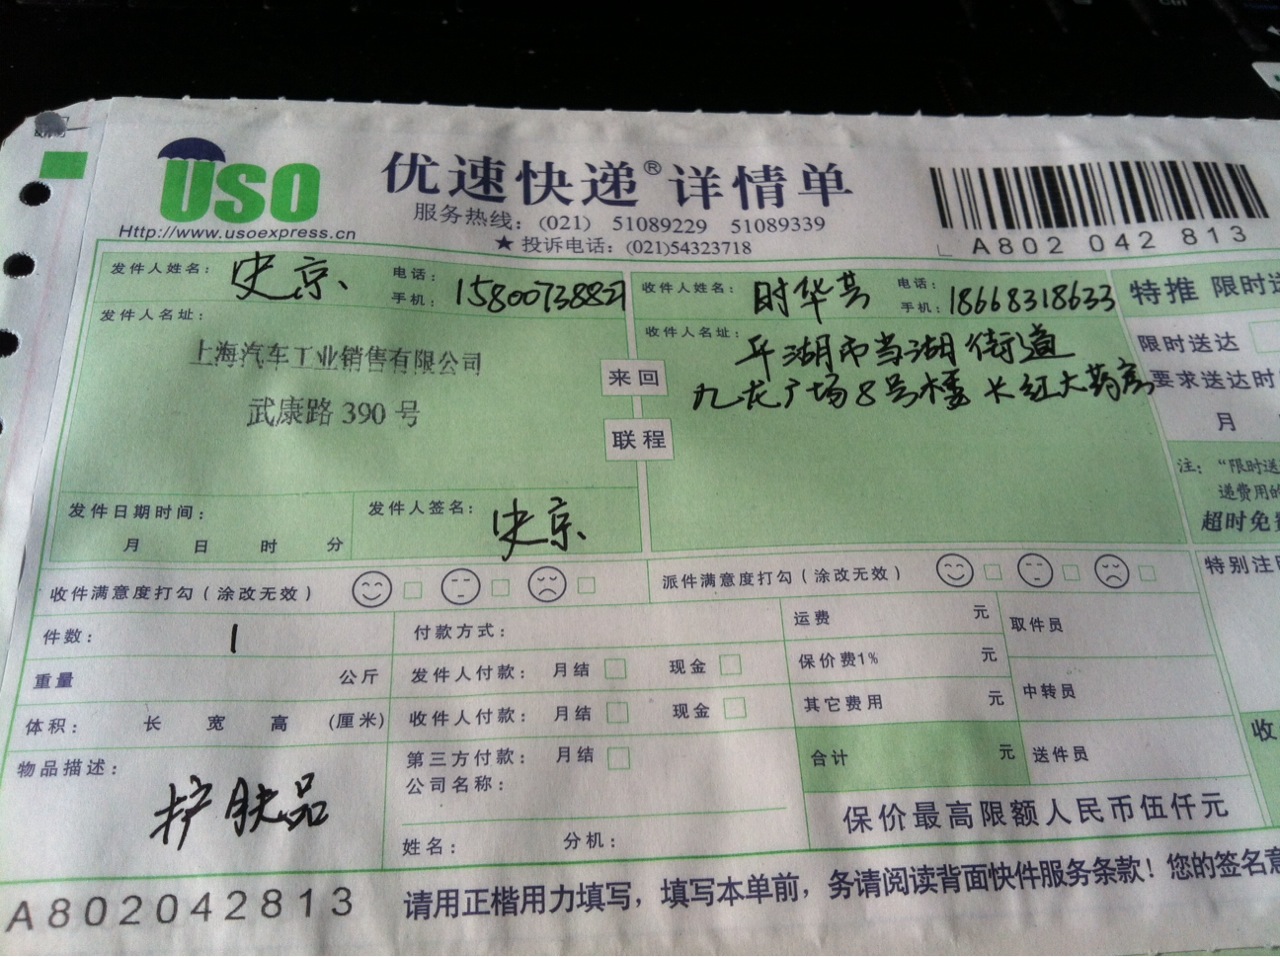 USO
Http://www.usoexpress.cn
优速快递®详情单
服务热线：(021) 51089229 51089339
★投诉电话：(021)54323718
A802 042 813
发件人姓名： 史京
电话：
手机： 15800738827
收件人姓名： 时华芸
电话：
手机： 18668318633
特推 限时送
发件人名址：
上海汽车工业销售有限公司
武康路 390 号
来回
联程
收件人名址：
平湖市当湖街道
九龙广场8号楼 长红大药房
限时送达
要求送达时
月
注：“限时送
递费用的
超时免
发件日期时间：
月 日 时 分
发件人签名： 史京
收件满意度打勾（涂改无效）
派件满意度打勾（涂改无效）
特别注
件数： 1
重量 公斤
体积： 长 宽 高 (厘米)
物品描述：
护肤品
付款方式：
发件人付款： 月结 现金
收件人付款： 月结 现金
第三方付款： 月结
公司名称：
姓名： 分机：
运费 元
保价费1% 元
其它费用 元
合计 元
取件员
中转员
送件员
收
保价最高限额人民币伍仟元
A802042813
请用正楷用力填写，填写本单前，务请阅读背面快件服务条款！您的签名意